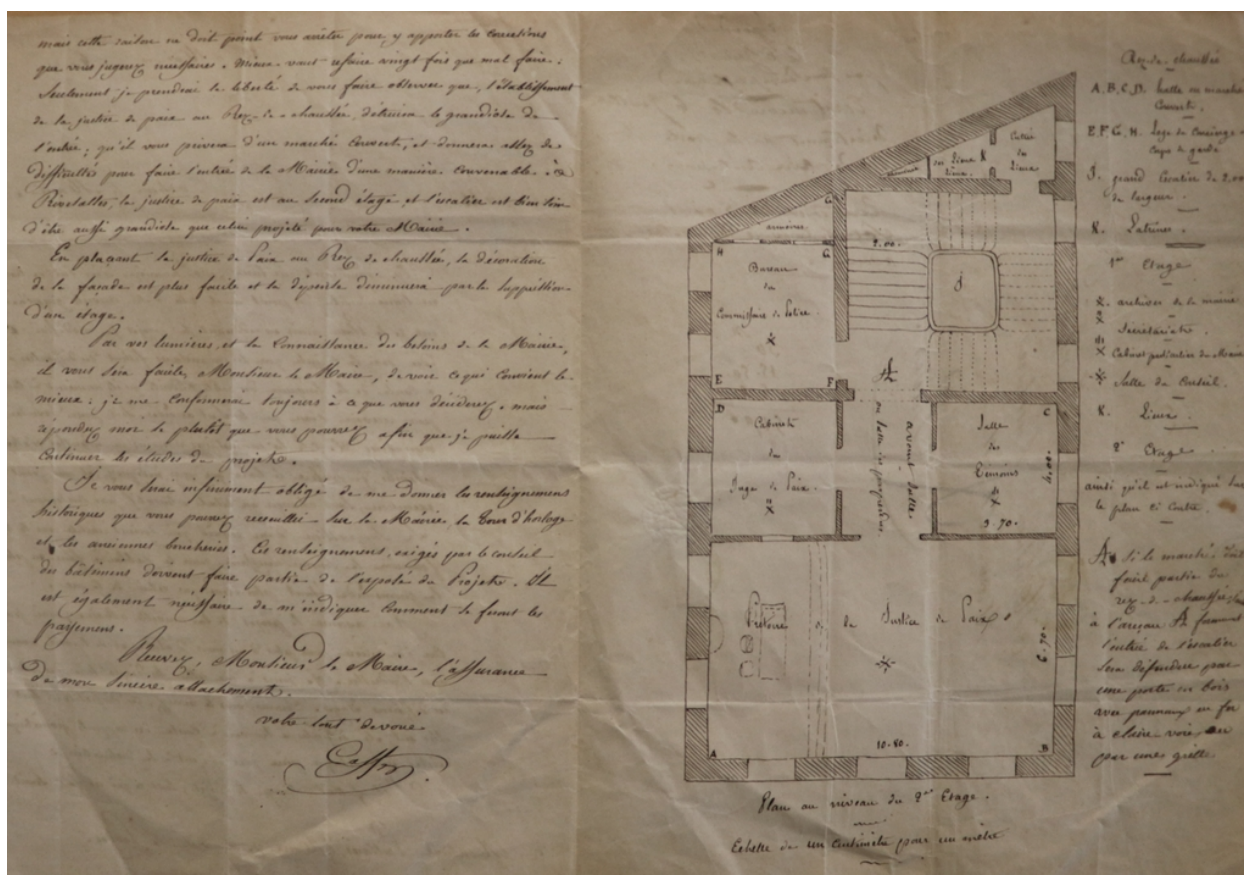 mais cette raison ne doit point vous arrêter pour y apporter les corrections
que vous jugerez nécessaires. Mieux vaut refaire vingt fois que mal faire.
Seulement je prendrai la liberté de vous faire observer que, l'établissement
de la justice de paix au Rez-de-chaussée, détruira le grandiose de
l'entrée; qu'il vous privera d'un marché couvert, et donnera assez de
difficultés pour faire l'entrée de la Mairie d'une manière convenable. à
Rivesaltes, la justice de paix est au second étage et l'escalier est bien loin
d'être aussi grandiose que celui projeté pour votre Mairie.
En plaçant la justice de Paix au Rez de chaussée, la décoration
de la façade est plus facile et la dépense diminuera par la suppression
d'un étage.
Par vos lumières, et la connaissance des besoins de la Mairie,
il vous sera facile, Monsieur le Maire, de voir ce qui convient le
mieux: je me conformerai toujours à ce que vous déciderez. mais
répondez moi le plutôt que vous pourrez afin que je puisse
continuer les études du projet.
Je vous serai infiniment obligé de me donner les renseignemens
historiques que vous pourrez recueillir sur la Mairie, la tour d'horloge
et les anciennes boucheries. Ces renseignemens, exigés par le conseil
des bâtimens doivent faire partie de l'exposé du Projet. Il
est également nécessaire de m'indiquer comment se feront les
payemens.
Recevez, Monsieur le Maire, l'assurance
de mon sincère attachement.
votre tout dévoué
armoires
H
G
G
Bureau
du
Commissaire de Police
E
F
2.00
J
D
Cabinet
du
Juge de Paix
avant salle
ou salle des pas perdus
C
Salle
des
Témoins
3.70
4.00
Prétoire de Justice de Paix
6.70
10.80
A
B
Plan au niveau du 2me Etage.
Echelle de un centimètre pour un mètre
Rez-de-chaussée
A.B.C.D. halle ou marché
Couvert.
E.F.G.H. Loge du Concierge ou
Corps de garde
J. grand Escalier de 2.00
de largeur.
K. Latrines.
1er Etage
archives de la mairie
Secrétariat.
Cabinet particulier du Maire
Salle du Conseil.
K. Lieux.
2e Etage.
ainsi qu'il est indiqué sur
le plan ci contre.
Si le marché
fait partie du
rez-de-chaussée
à l'arceau formant
l'entrée de l'escalier
sera défendue par
une porte en bois
avec panneaux en fer
à claire voie, ou
par une grille.